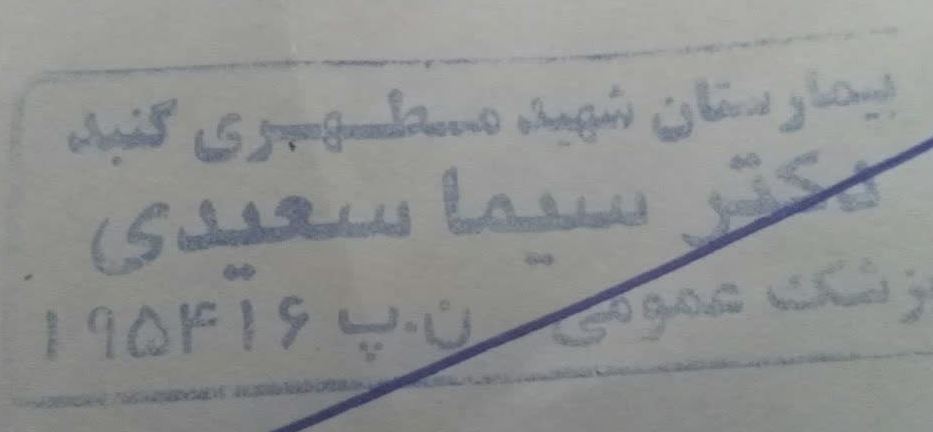 بیمارستان شهید مطهری گنبد
دکتر سیما سعیدی
پزشک عمومی ن.پ ۱۹۵۴۱۶